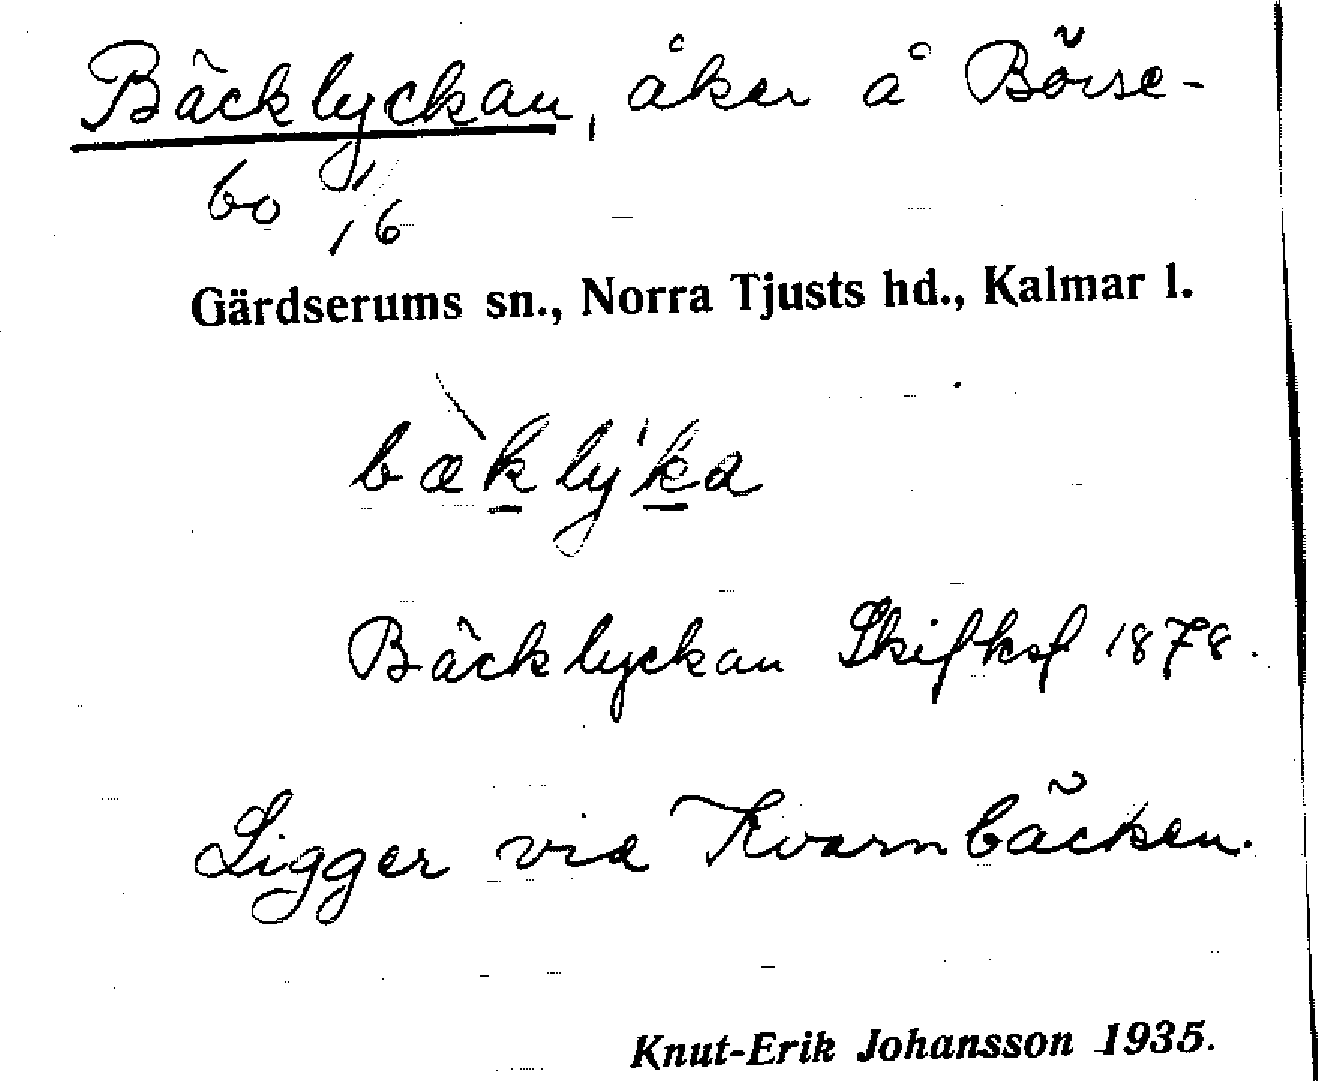 Bäcklyckan, åker å Börse-
bo 1/6
Gärdserums sn., Norra Tjusts hd., Kalmar l.
bæ̀klẏ́ka
Bäcklyckan Skifksf 1878.
Ligger vid Kvarnbäcken.
Knut-Erik Johansson 1935.